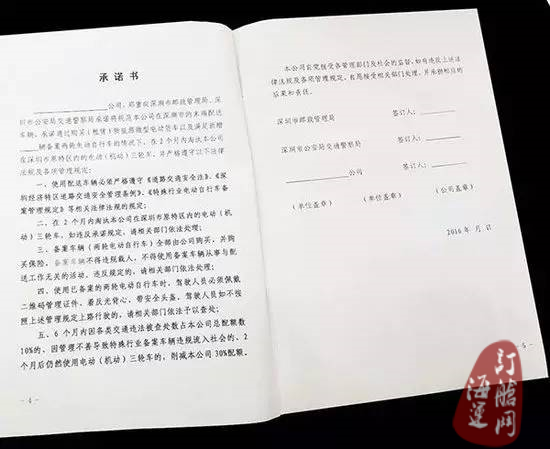 承诺书
公司，郑重向深圳市邮政管理局、深
圳市公安局交通警察局承诺将规范本公司在深圳市的末端配送
车辆。承诺通过购买（租赁）新能源微型电动货车以及满足新增
辆备案两轮电动自行车的情况下，在2个月内淘汰本公司
在深圳市原特区内的电动（机动）三轮车，并严格遵守以下法律
法规及各项管理规定：
一、使用配送车辆必须严格遵守《道路交通安全法》、《深
圳经济特区道路交通安全管理条例》、《特殊行业电动自行车备
案管理规定》等相关法律法规的规定；
二、在2个月内淘汰本公司在深圳市原特区内的电动（机
动）三轮车，如违反承诺规定，请相关部门依法处理；
三、备案车辆（两轮电动自行车）全部由公司购买，并购
买保险，备案车辆不得违规载人，不得使用备案车辆从事与配
送工作无关的活动，违反规定的，请相关部门依法处理；
四、使用已备案的两轮电动自行车时，驾驶人员必须佩戴
二维码管理证件、着反光背心、带安全头盔，驾驶人员如不按
照上述管理规定上路行驶的，请相关部门依法予以查处；
五、6个月内因各类交通违法被查处数占本公司总配额数
10%的、因管理不善导致特殊行业备案车辆违规流入社会的、2
个月后仍然使用电动（机动）三轮车的，削减本公司30%配额。
- 4 -
本公司自觉接受各管理部门及社会的监督，如有违反上述法
律法规及各项管理规定，自愿接受相关部门处理，并承担相应的
后果和责任。
深圳市邮政管理局 签订人：
深圳市公安局交通警察局 签订人：
公司 签订人：
（单位盖章） （单位盖章） （公司盖章）
2016年 月 日
- 5 -
订舱网
海运